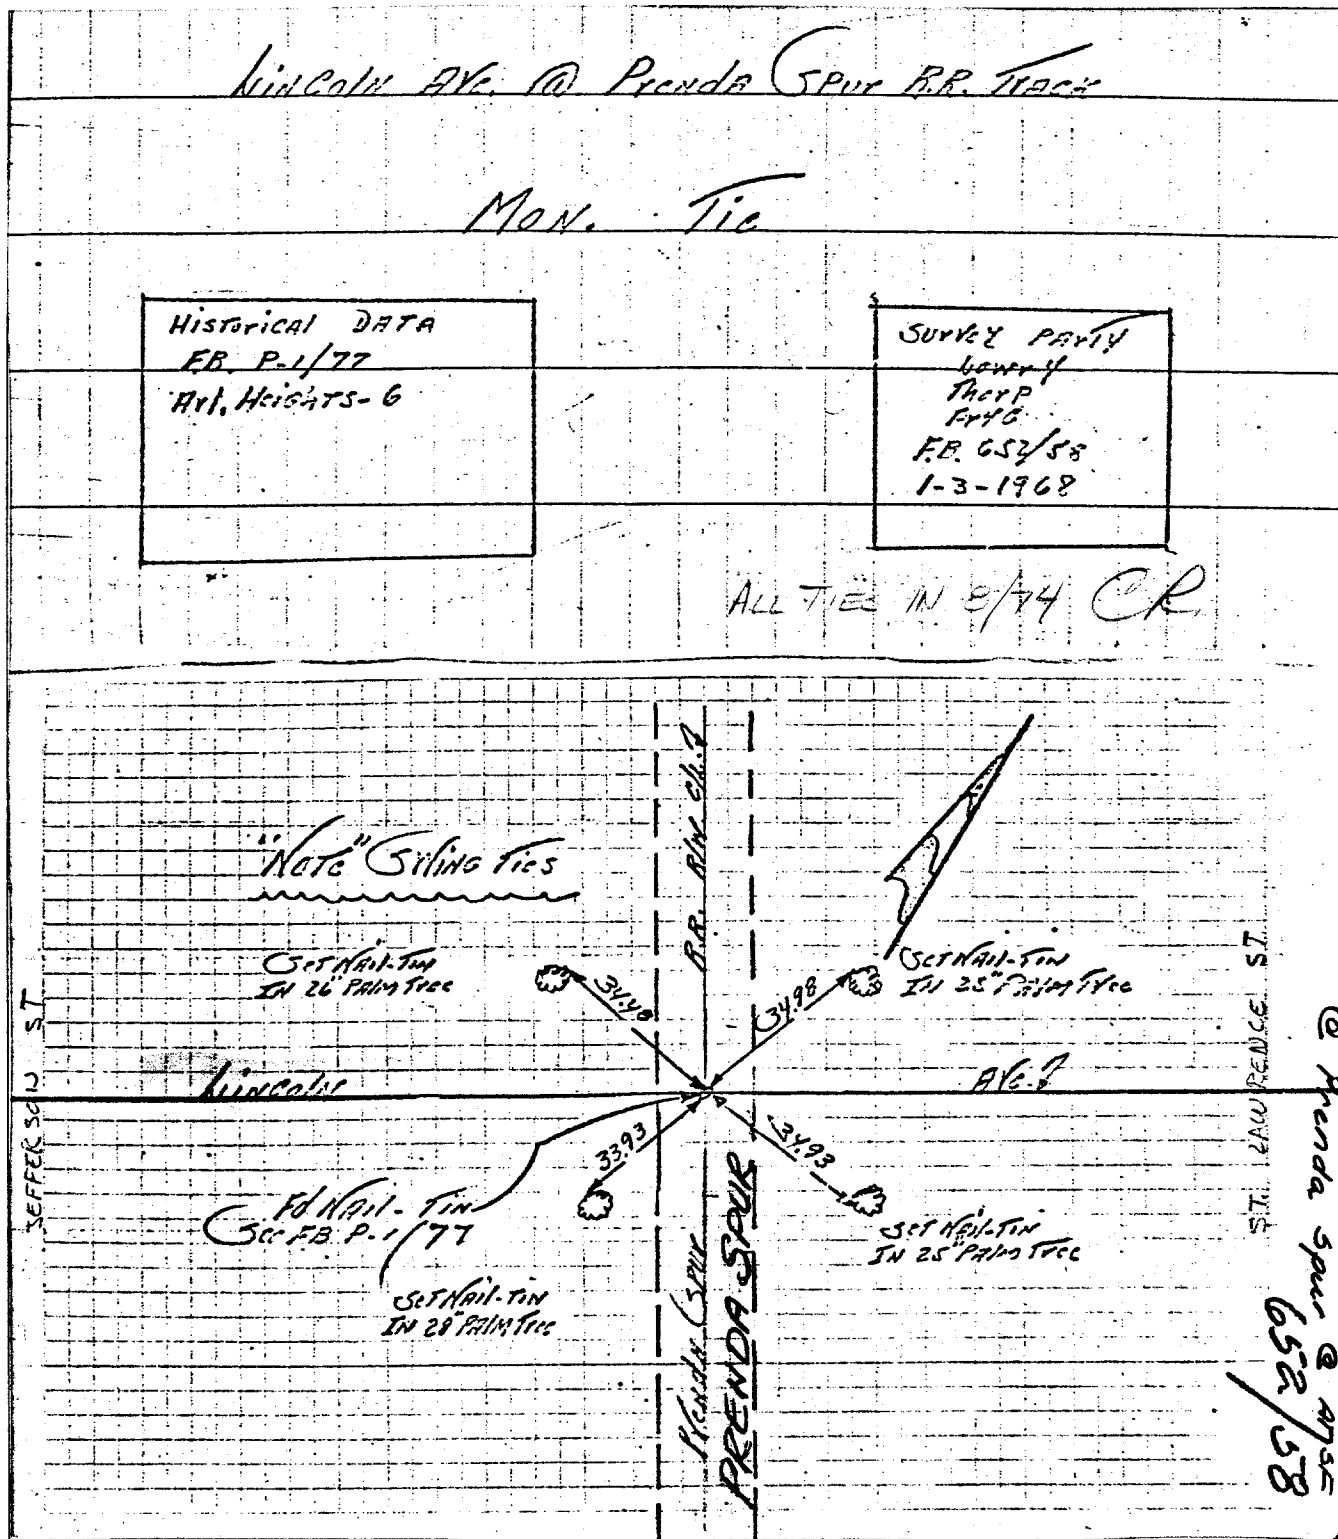 Lincoln Ave. @ Prenda Spur R.R. Track
Mon. Tie
Historical DATA
F.B. P-1/77
Arl. Heights-6
Survey Party
Lowry
Thorp
Frye
F.B. 652/58
1-3-1968
ALL TIES IN 8/74 CR
"Note" Swing Ties
R.R. R/W
Set Nail-Tin
In 26" Palm Tree
34.48
34.98
Set Nail-Tin
In 25" Palm Tree
JEFFERSON ST
Lincoln
Ave.
ST. LAWRENCE ST
33.93
34.93
Fd Nail-Tin
See F.B. P-1/77
Set Nail-Tin
In 25" Palm Tree
Set Nail-Tin
In 28" Palm Tree
Prenda Spur
PRENDA SPUR
@ Prenda Spur @
652/58